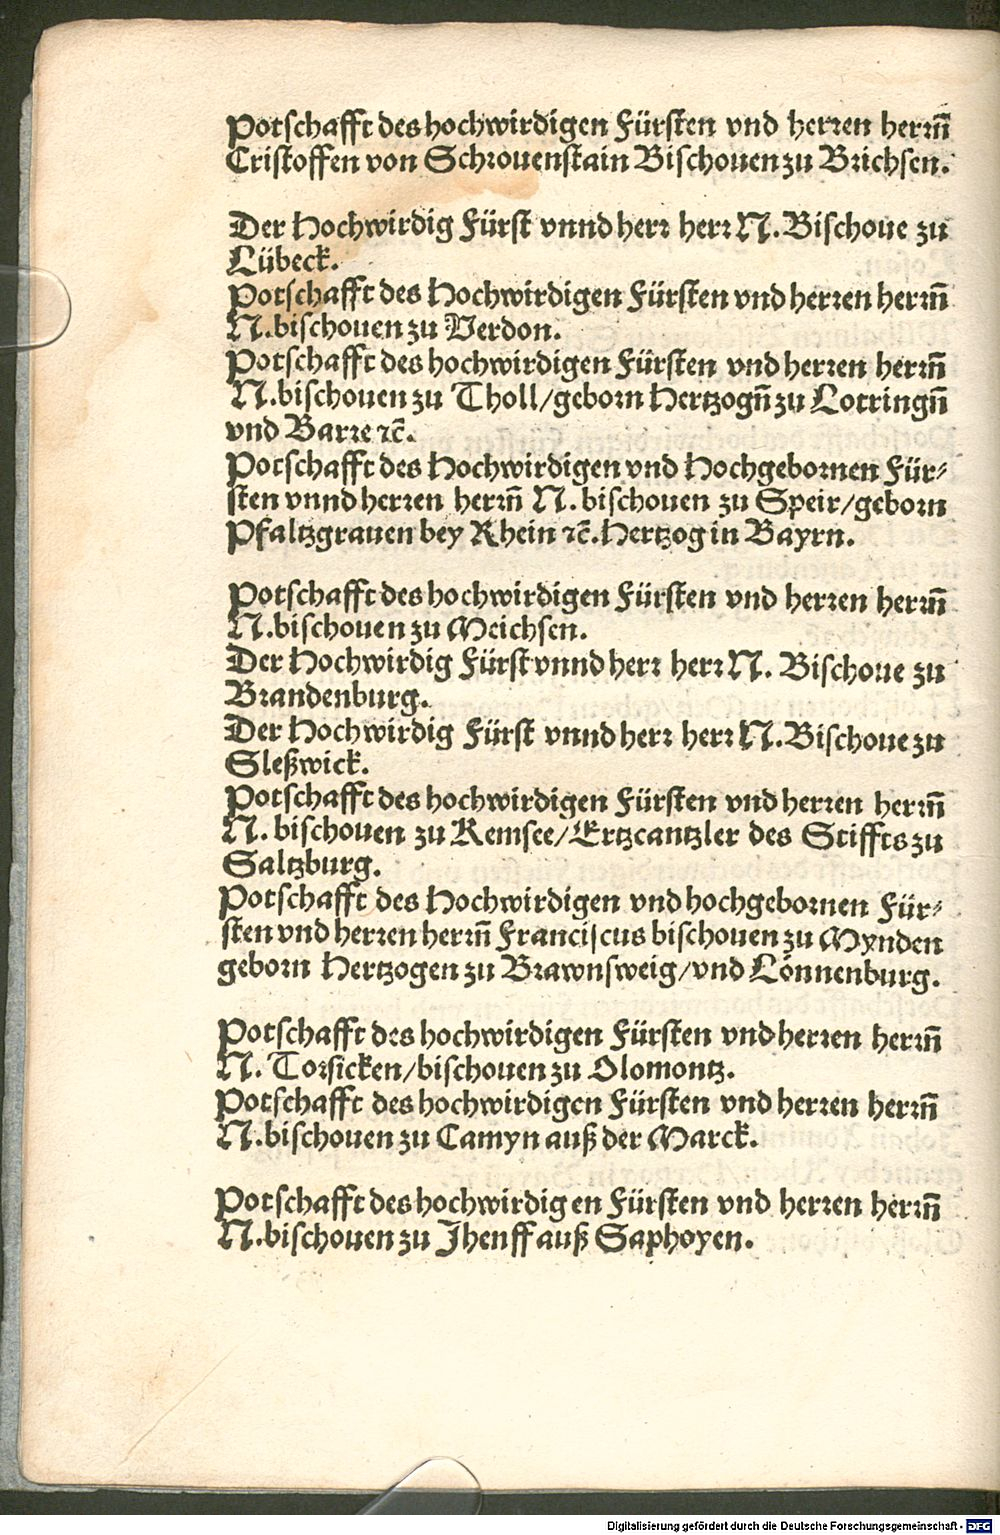 Potschafft des hochwirdigen Fürsten vnd herren herrñ
Cristoffen von Schrouenstain Bischouen zu Brichsen.
Der Hochwirdig Fürst vnnd herr herr N. Bischoue zu
Lübeck.
Potschafft des Hochwirdigen Fürsten vnd herren herrñ
N. bischouen zu Verdon.
Potschafft des hochwirdigen Fürsten vnd herren herrñ
N. bischouen zu Tholl/geborn Hertzogñ zu Lottringñ
vnd Barre ⁊c̃.
Potschafft des Hochwirdigen vnd Hochgebornen Für⸗
sten vnnd herren herrñ N. bischouen zu Speir/geborn
Pfaltzgrauen bey Rhein ⁊c̃. Hertzog in Bayrn.
Potschafft des hochwirdigen Fürsten vnd herren herrñ
N. bischouen zu Meichsen.
Der Hochwirdig Fürst vnnd herr herr N. Bischoue zu
Brandenburg.
Der Hochwirdig Fürst vnnd herr herr N. Bischoue zu
Sleßwick.
Potschafft des hochwirdigen Fürsten vnd herren herrñ
N. bischouen zu Kemsee/Ertzcantzler des Stiffts zu
Saltzburg.
Potschafft des Hochwirdigen vnd hochgebornen Für⸗
sten vnd herren herrñ Franciscus bischouen zu Mynden
geborn Hertzogen zu Brawnsweig/vnd Lönnenburg.
Potschafft des hochwirdigen Fürsten vnd herren herrñ
N. Torsicken/bischouen zu Olomontz.
Potschafft des hochwirdigen Fürsten vnd herren herrñ
N. bischouen zu Camyn auß der Marck.
Potschafft des hochwirdigen Fürsten vnd herren herrñ
N. bischouen zu Jhenff auß Saphoyen.
Digitalisierung gefördert durch die Deutsche Forschungsgemeinschaft - DFG